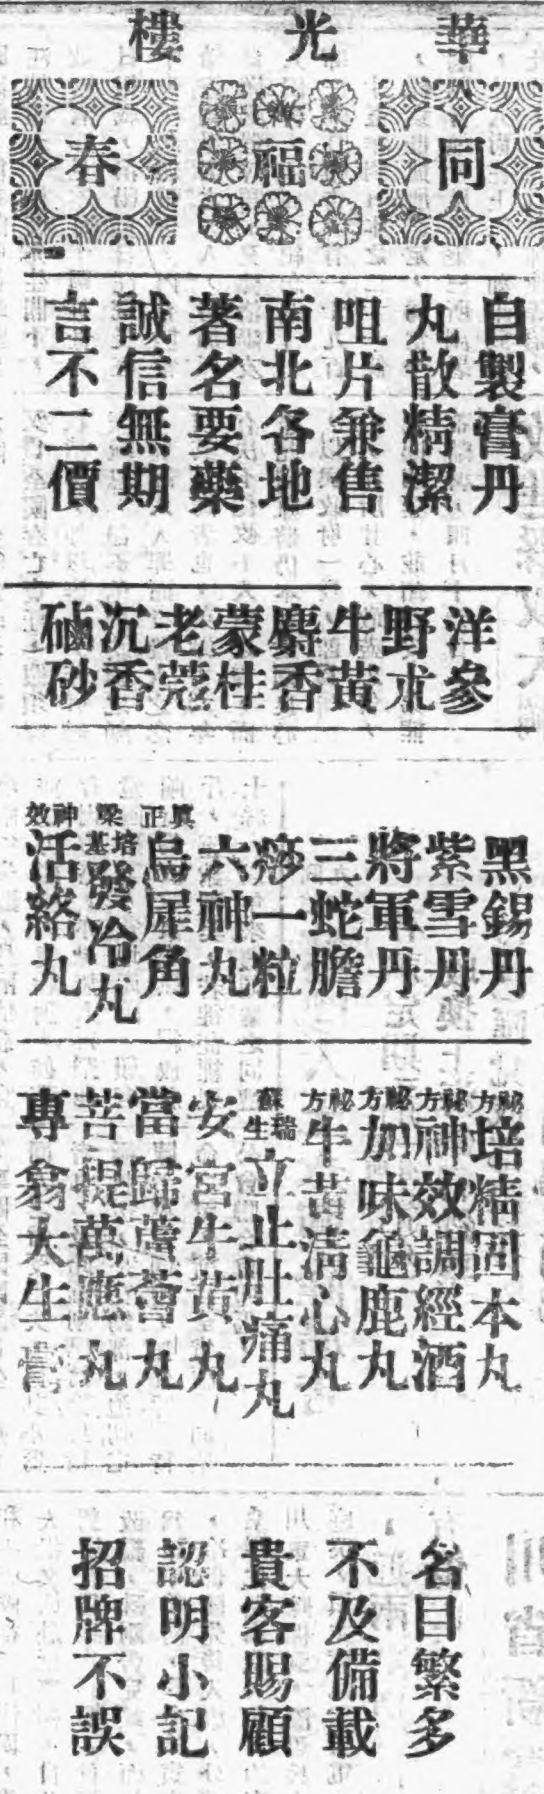 華光樓
同福春
自製膏丹
丸散精潔
咀片兼售
南北各地
著名要藥
誠信無期
言不二價
洋參
野朮
牛黃
麝香
蒙桂
老蔻
沉香
磠砂
黑錫丹
紫雪丹
將軍丹
三蛇膽
痧一粒
六神丸
真正烏犀角
梁培基發冷丸
神效活絡丸
祕方培精固本丸
祕方神效調經酒
祕方加味龜鹿丸
祕方牛黃清心丸
蘇瑞生立止肚痛丸
安宮牛黃丸
當歸蘆薈丸
菩提萬應丸
專翕大生膏
名目繁多
不及備載
貴客賜顧
認明小記
招牌不誤